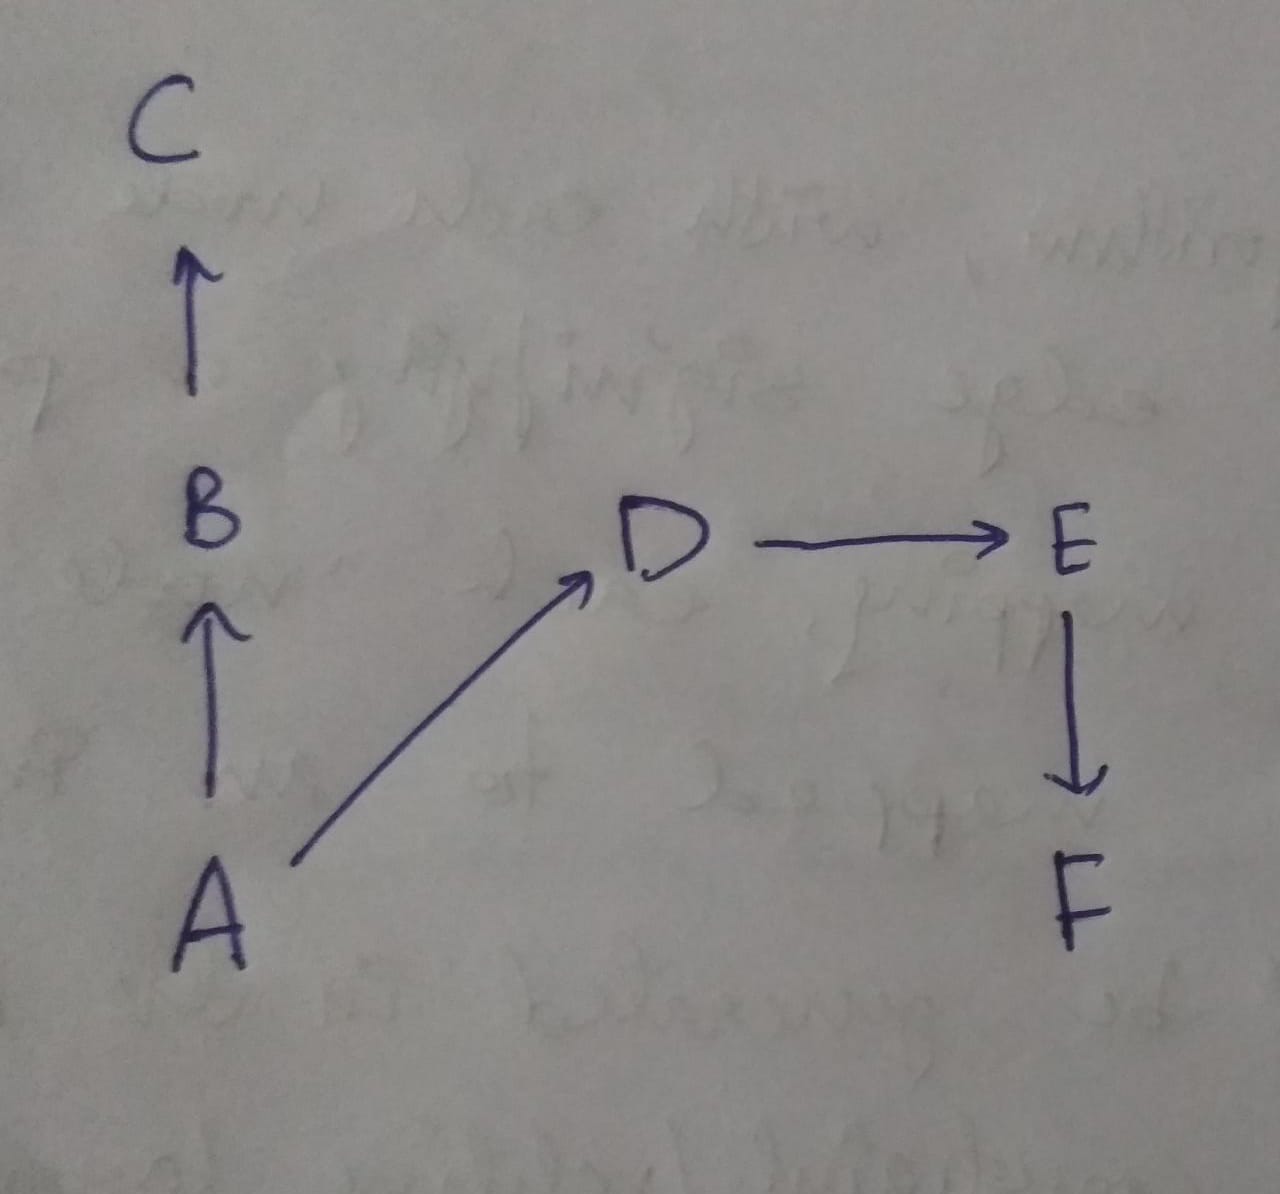 C
B
D
E
A
F